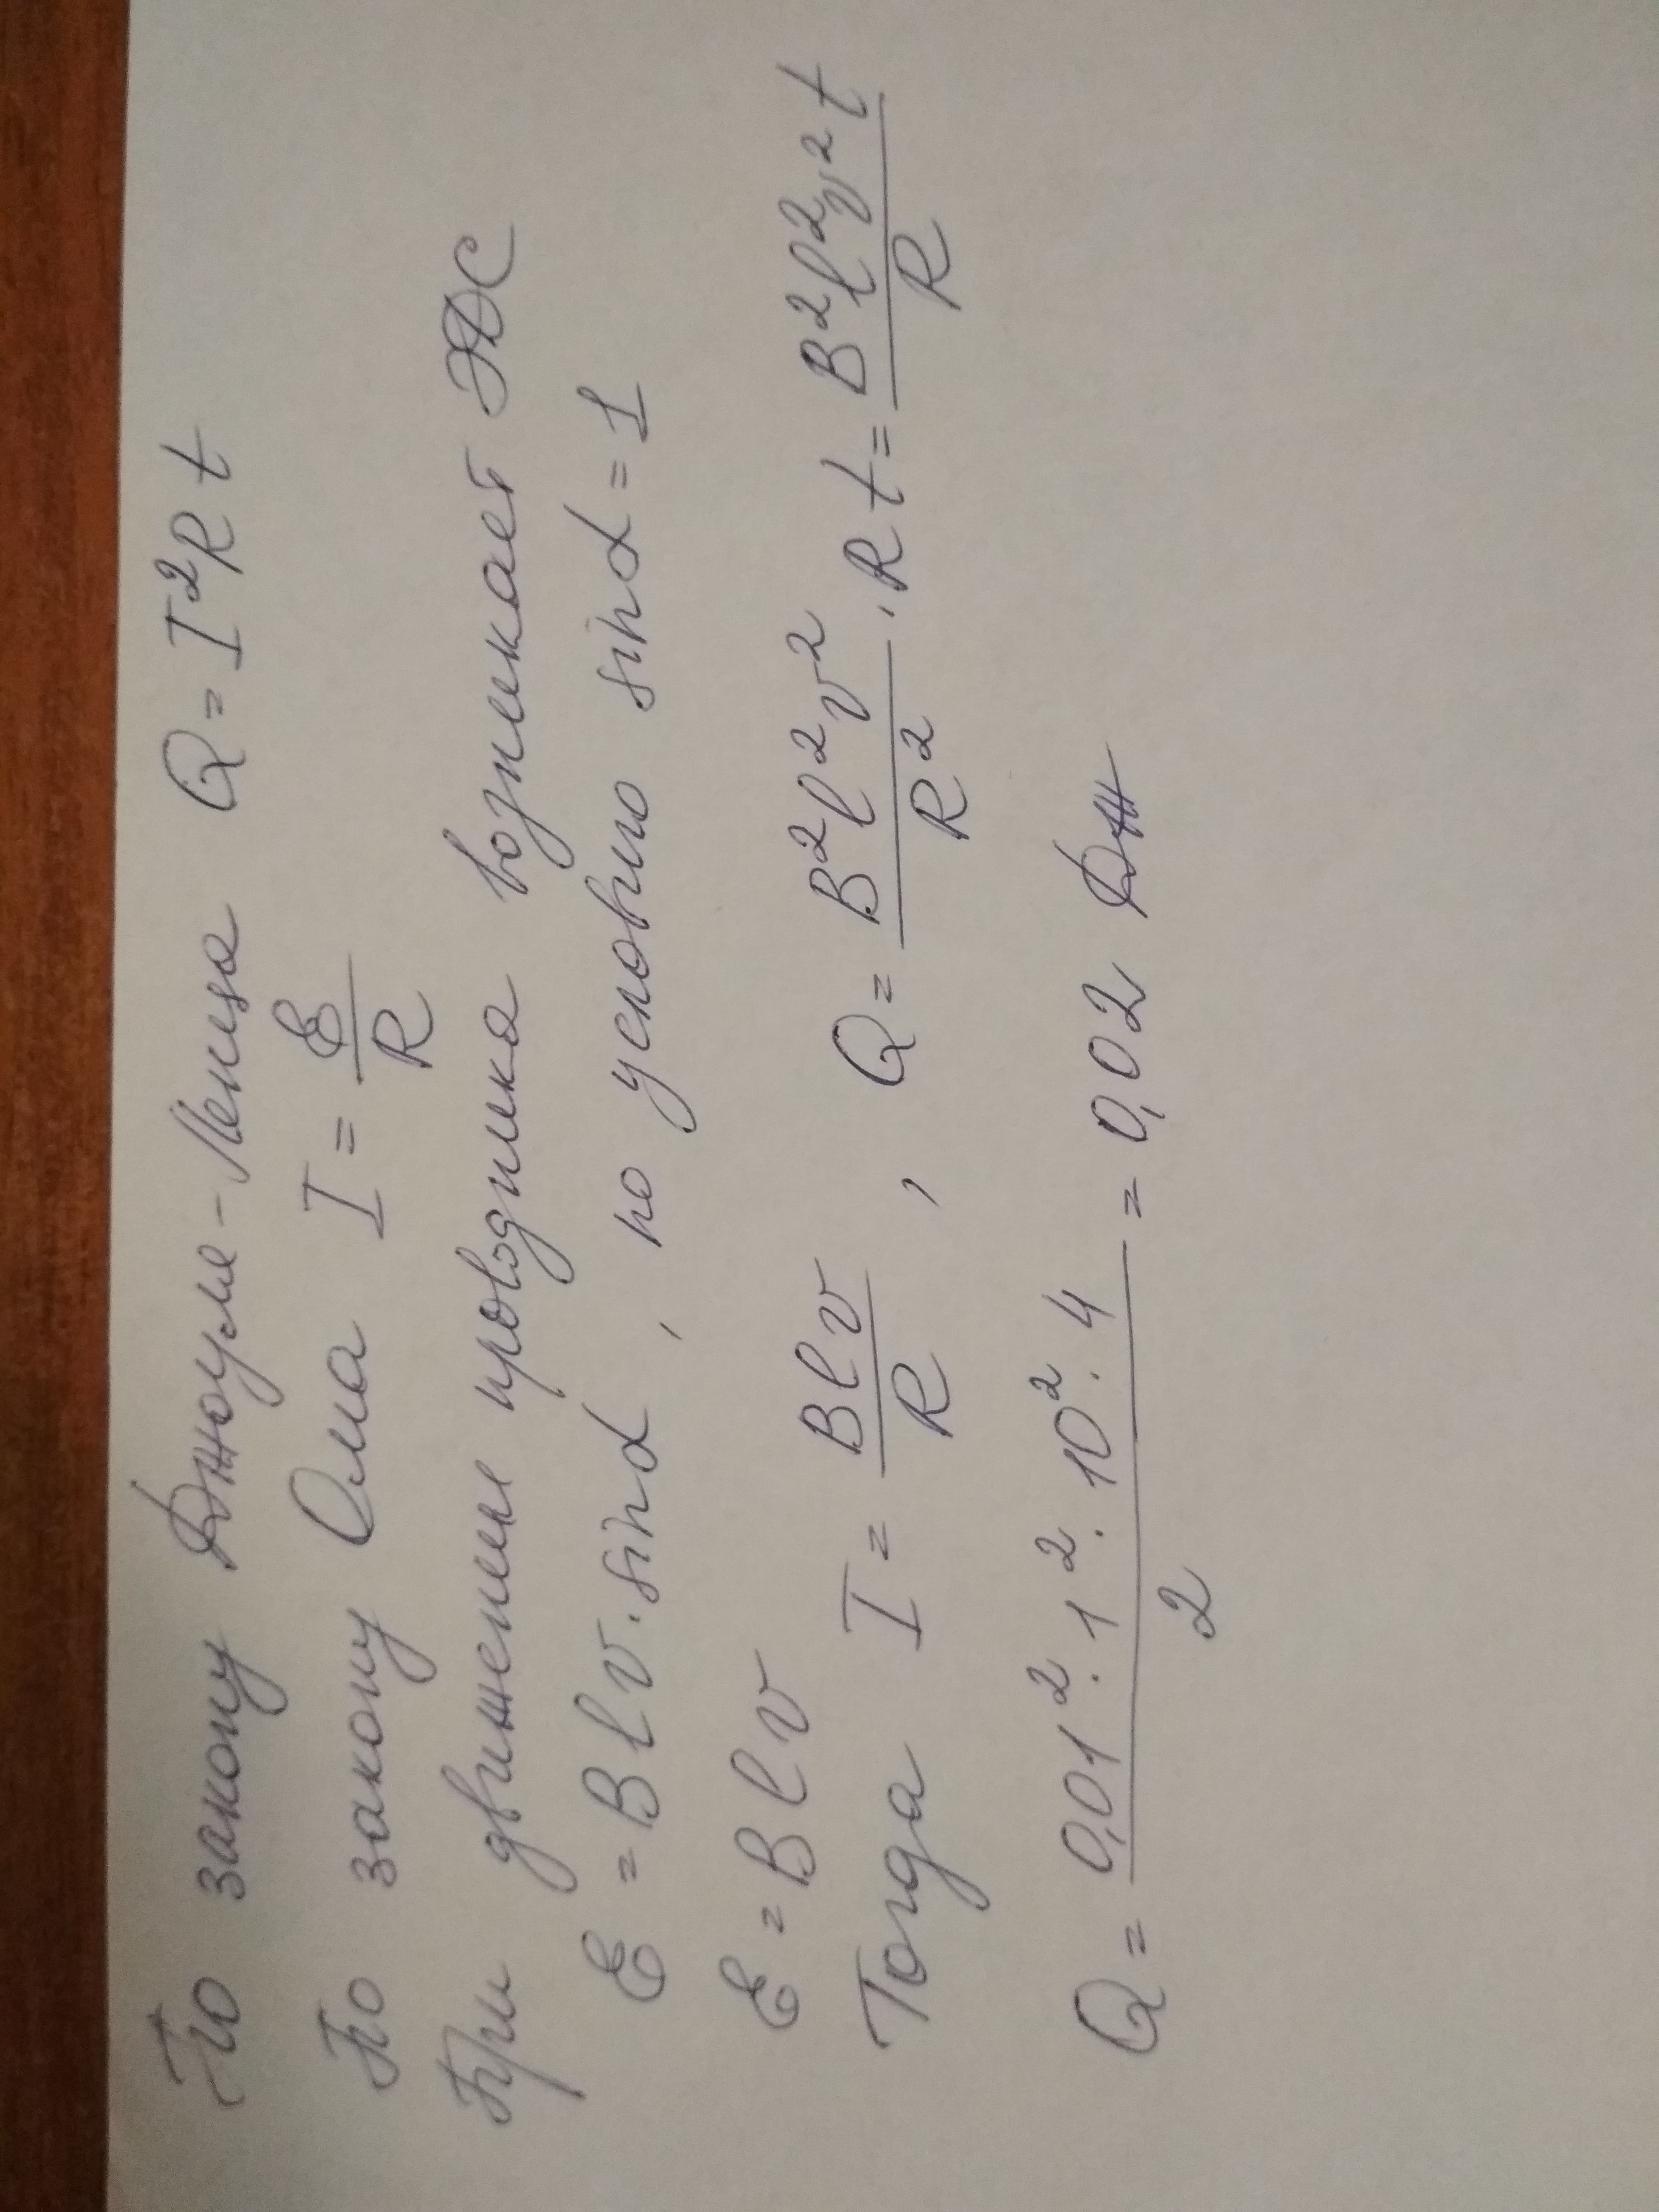 По закону Джоуля-Ленца Q = I²Rt
По закону Ома I = ℰ/R
При движении проводника возникает ЭДС
ℰ = Blv·sinα, по условию sinα = 1
ℰ = Blv
Тогда I = Blv/R, Q = B²l²v²/R² · Rt = B²l²v²t/R
Q = 0,01²·1²·10²·4/2 = 0,02 Дж